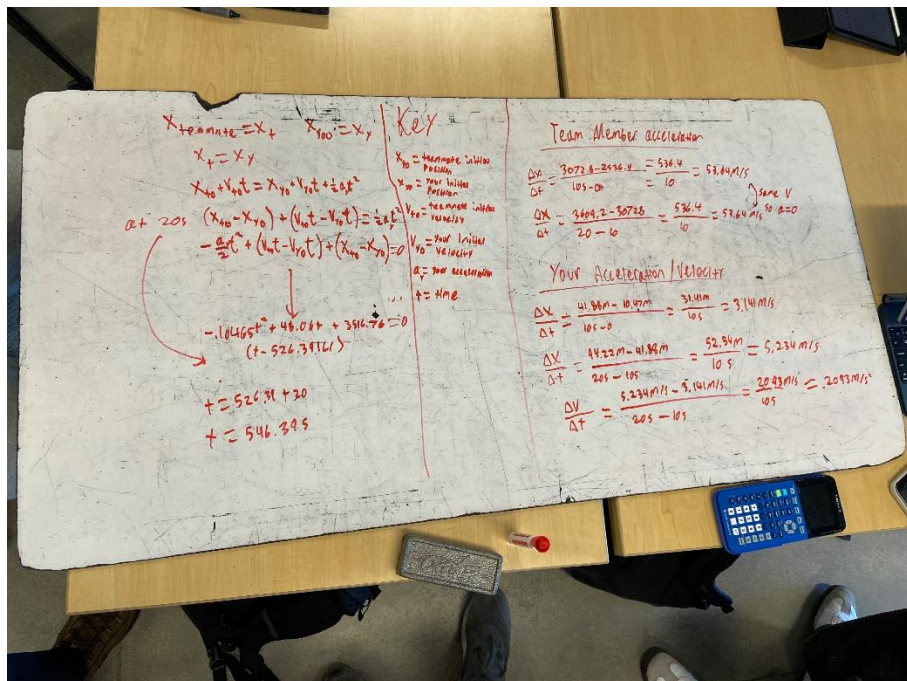 X_teammate = X_t    X_you = X_y
X_t = X_y
X_to + V_to t = X_yo + V_yo t + ½ a_y t²
at 20s (X_to - X_yo) + (V_to t - V_yo t) = ½ a_y t²
- a/2 t² + (V_to t - V_yo t) + (X_to - X_yo) = 0
-.10465t² + 48.06t + 3516.76 = 0
(t - 526.39161)
t = 526.39 + 20
t = 546.39s
Key
X_to = teammate initial position
X_yo = your initial position
V_to = teammate initial velocity
V_yo = your initial velocity
a_y = your acceleration
t = time
Team Member acceleration
ΔX/Δt = (3072.8 - 2536.4)/(10s - 0) = 536.4/10 = 53.64 m/s
ΔX/Δt = (3609.2 - 3072.8)/(20 - 10) = 536.4/10 = 53.64 m/s
same V
so a=0
Your Acceleration/Velocity
ΔX/Δt = (41.88m - 10.47m)/(10s - 0) = 31.41m/10s = 3.141 m/s
ΔX/Δt = (94.22m - 41.88m)/(20s - 10s) = 52.34m/10s = 5.234 m/s
ΔV/Δt = (5.234m/s - 3.141m/s)/(20s - 10s) = 2.093m/s/10s = .2093m/s²